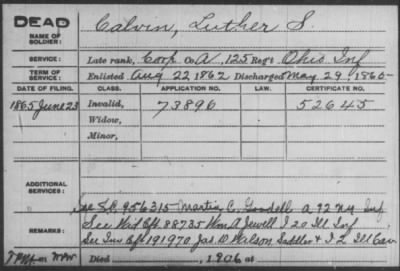 DEAD
NAME OF SOLDIER: Calvin, Luther S.
SERVICE: Late rank, Corp Co. A, 125 Reg't Ohio Inf
TERM OF SERVICE: Enlisted Aug 22 1862 Discharged May 29 1865
DATE OF FILING. CLASS. APPLICATION NO. LAW. CERTIFICATE NO.
1865 June 23 Invalid, 73896 52645
Widow,
Minor,
ADDITIONAL SERVICES:
See S.C. 956315 Martin C. Goodell A 92 N.Y. Inf
REMARKS: See Wid Cft. 88735 Wm A Jewell I 20 Ill Inf
See Inv Cft 191970 Jas D Walson Saddler & I 2 Ill Cav
Died , 1906 at